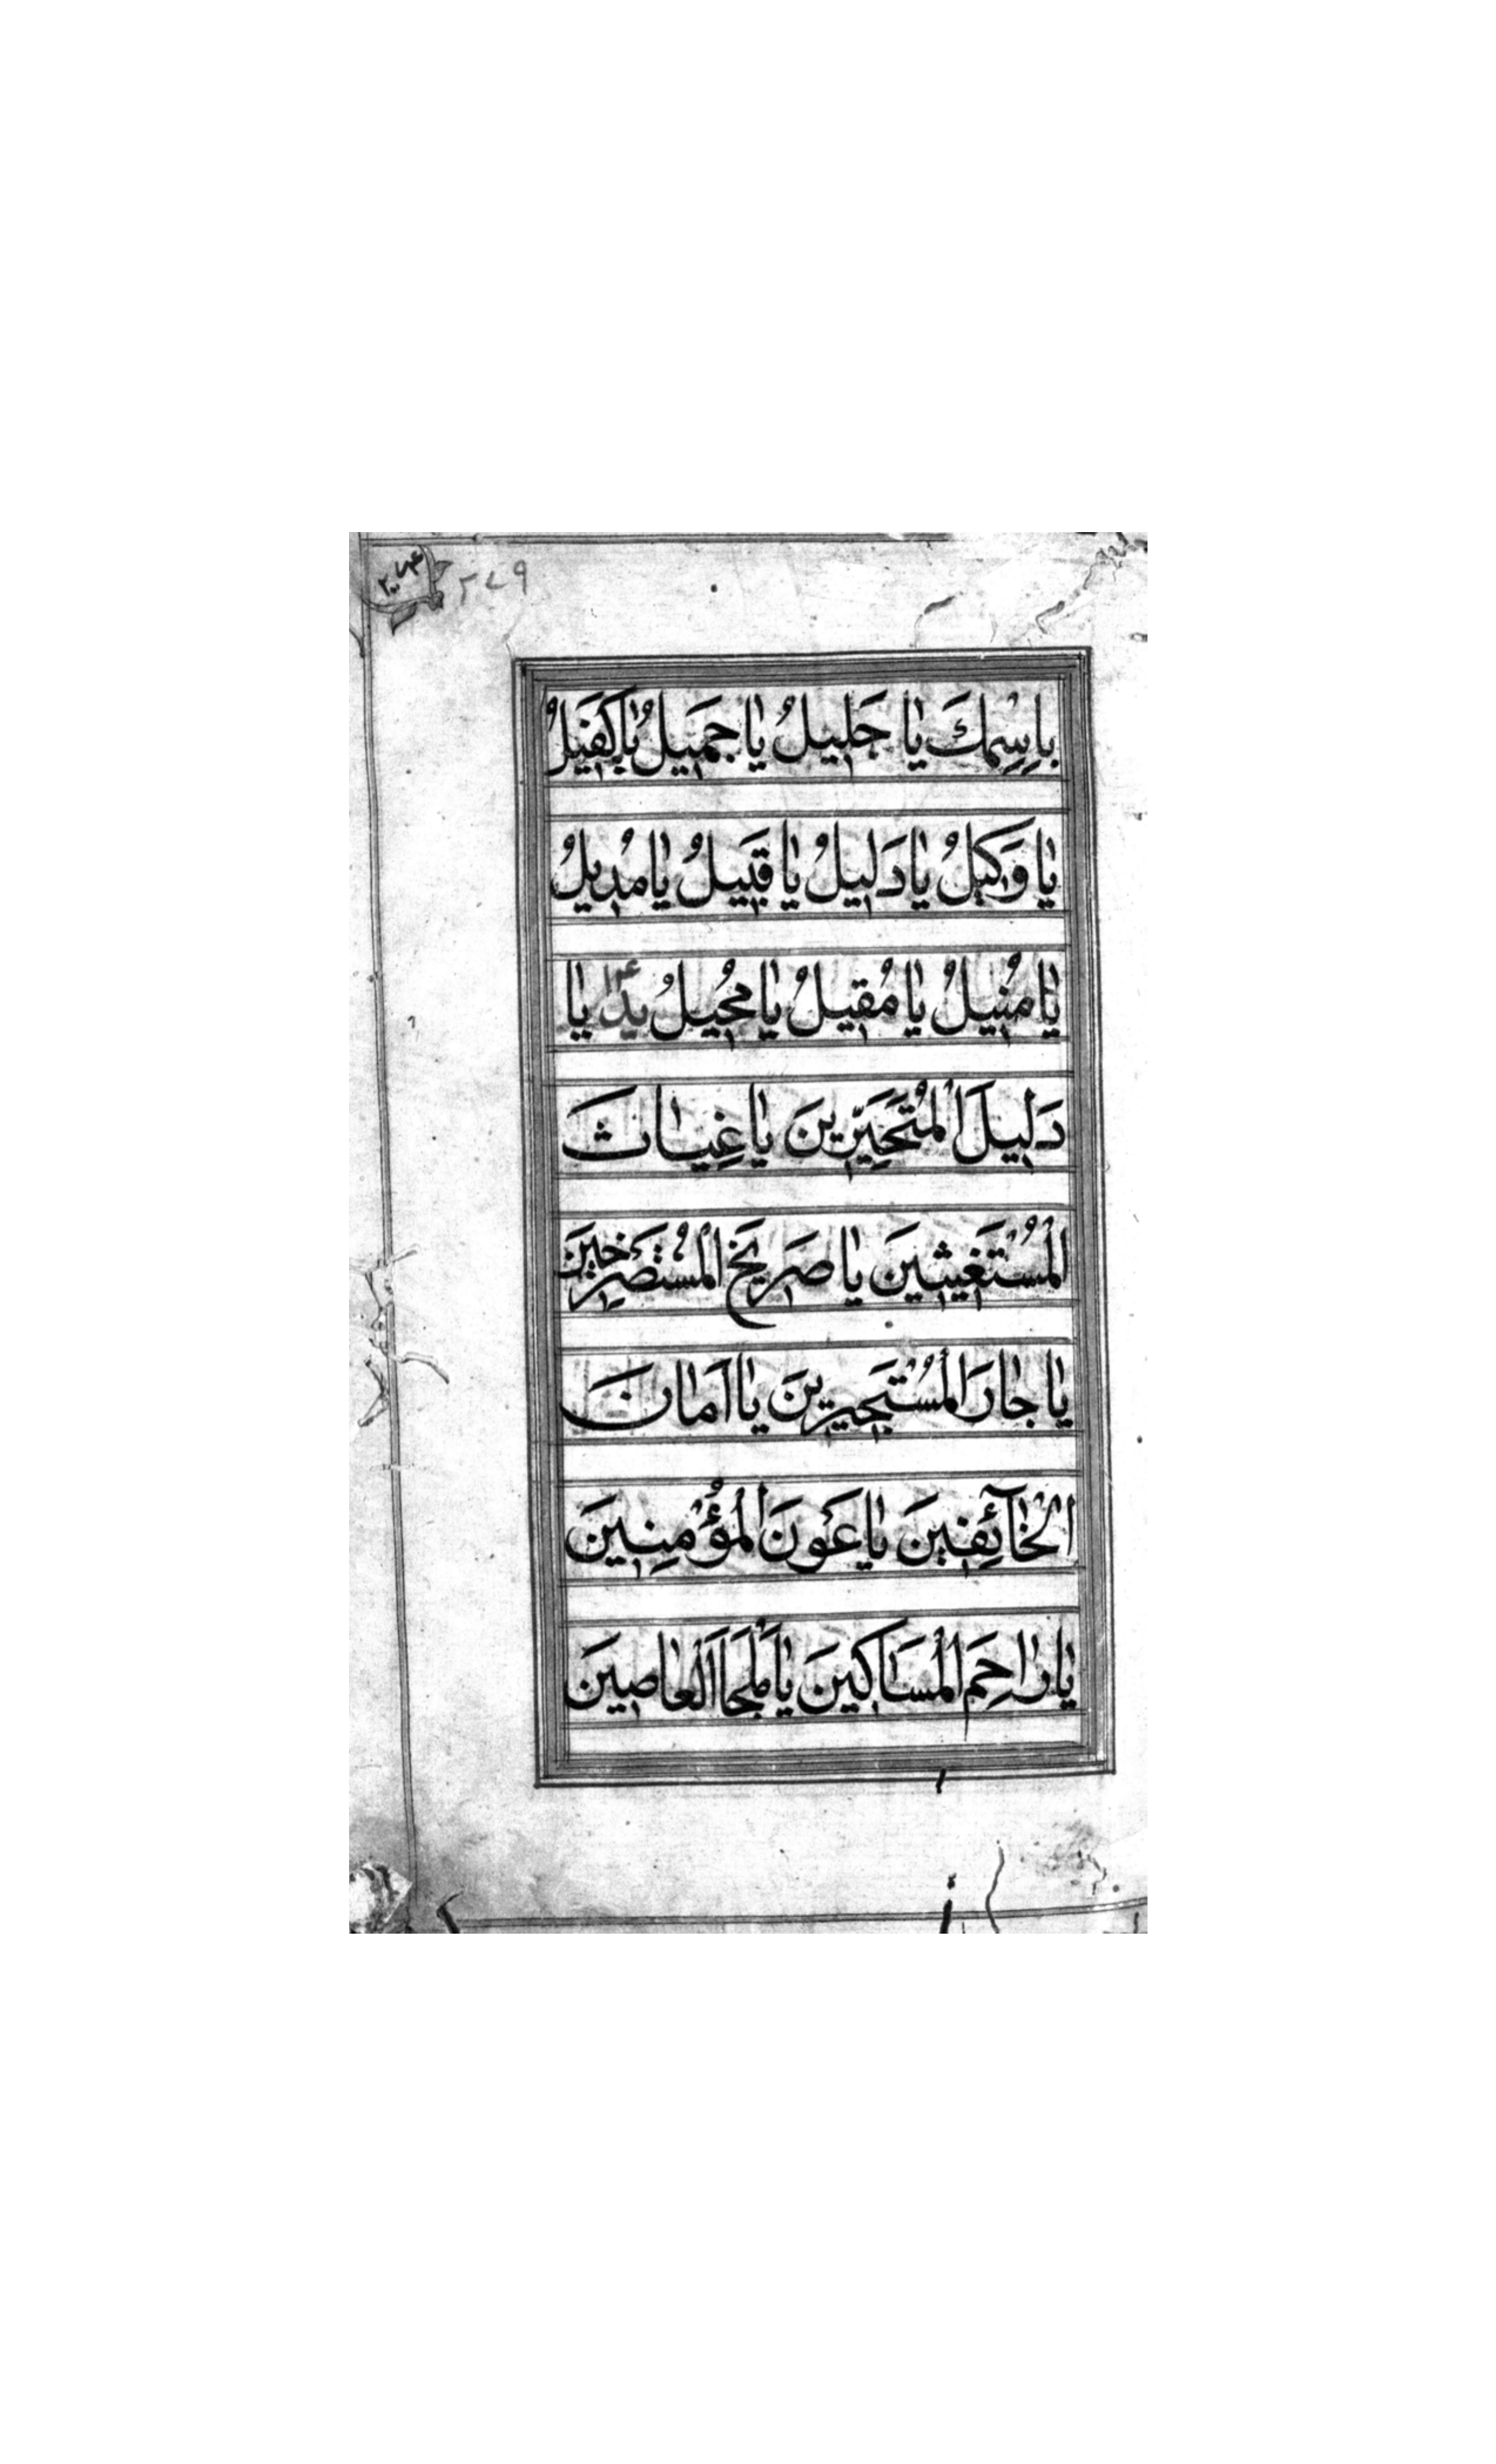 ۲۷۹
بِاسْمِكَ يا جَليلُ يا جَميلُ يا كَفيلُ
يا وَكيلُ يا دَليلُ يا قَبيلُ يا مُديلُ
يا مُنيلُ يا مُقيلُ يا مُحيلُ يد يا
دَليلَ الْمُتَحَيِّرينَ يا غِياثَ
الْمُسْتَغيثينَ يا صَريخَ الْمُسْتَصْرِخينَ
يا جارَ الْمُسْتَجيرينَ يا اَمانَ
الْخآئِفينَ يا عَوْنَ الْمُؤْمِنينَ
يا راحِمَ الْمَساكينَ يا مَلْجَاَ الْعاصينَ